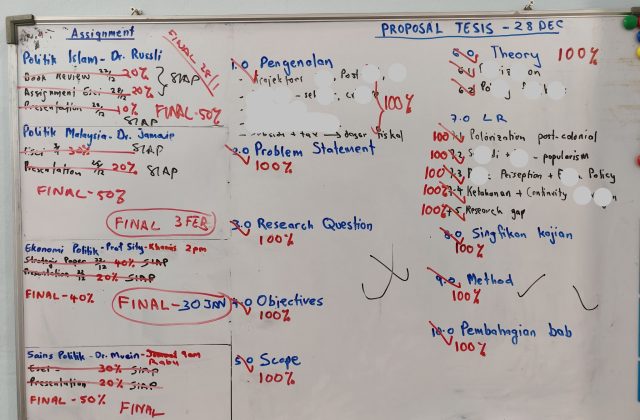 Assignment
FINAL 28/1
Politik Islam - Dr. Rusli
Book Review 22/12 20%
Assignment Esei 28/12 20%
SIAP
Presentation 10%
SIAP
FINAL-50%
Politik Malaysia - Dr. Jamaie
Esei 30% SIAP
Presentation 20% SIAP
FINAL-50%
FINAL 3 FEB
Ekonomi Politik - Prof Sity - Khamis 2pm
Strategic Paper 22/12 40% SIAP
Presentation 20% SIAP
FINAL-40%
FINAL-30 JAN
Sains Politik - Dr. Muein - 9am
Rabu
Esei - 30% SIAP
Presentation 20% SIAP
FINAL-50%
FINAL
PROPOSAL TESIS - 28 DEC
1.0 Pengenalan
100%
2.0 Problem Statement
100%
3.0 Research Question
100%
4.0 Objectives
100%
5.0 Scope
100%
6.0 Theory 100%
7.0 LR
100% 7.1 Polarization post-colonial
100% 7.2 - popularism
100% 7.3 Perception + Policy
100% 7.4 Ketahanan + Continuity
100% 7.5 Research gap
8.0 Singfikan kajian
100%
9.0 Method
100%
10.0 Pembahagian bab
100%